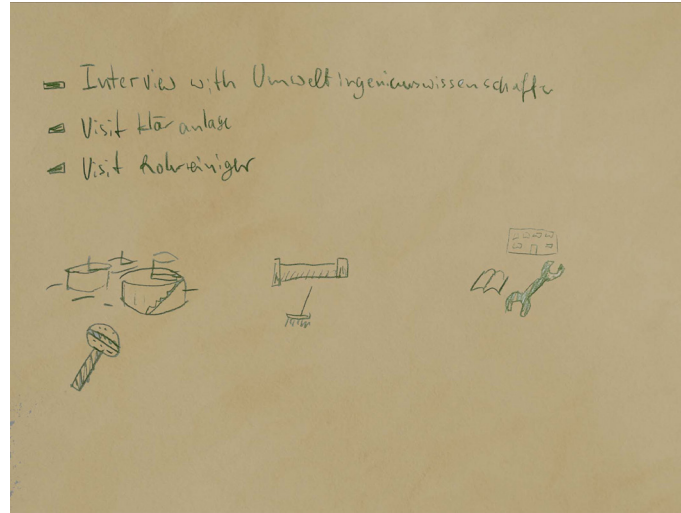 Interview with Umweltingenieurswissenschaftler
Visit Kläranlage
Visit Rohrreiniger